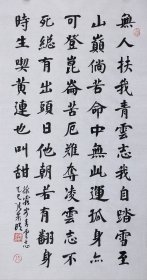 無人扶我青雲志我自踏雪至
山巔倘若命中無此運孤身亦
可登崑崙苦厄難奪凌雲志不
死總有出頭日他朝若有翻身
時生喫黃連也叫甜
徐霞客青雲志
乙巳